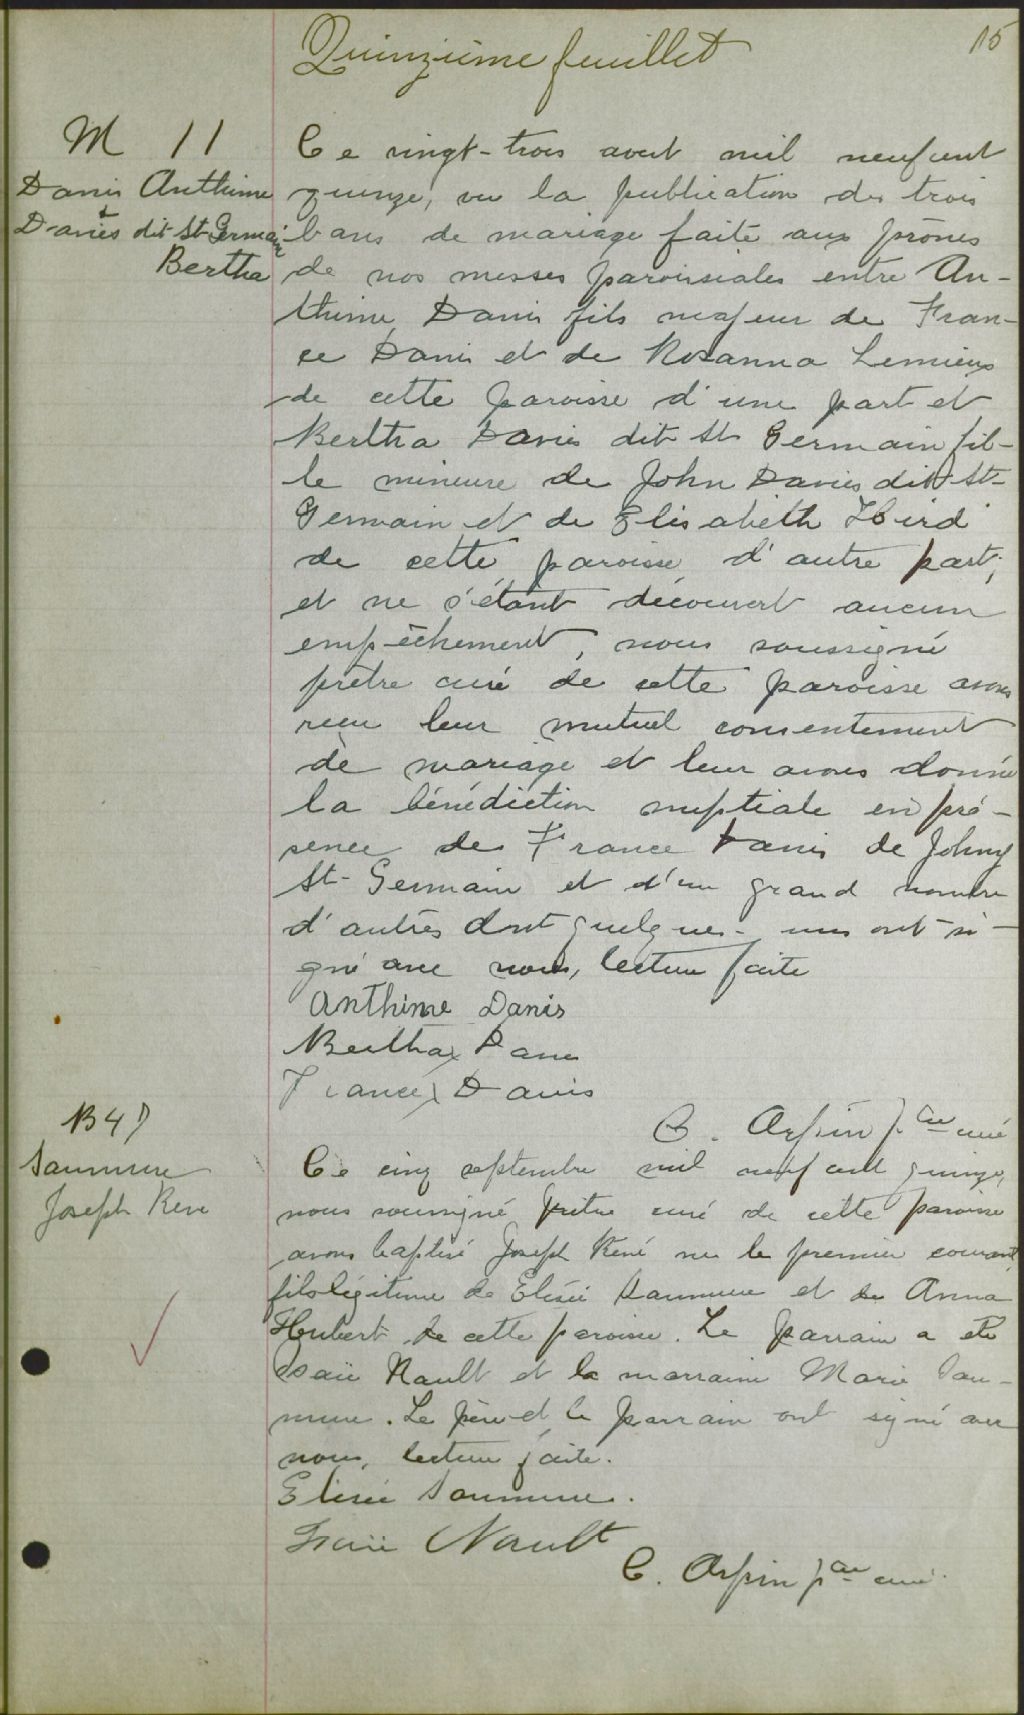 Quinzième feuillet
15
M 11
Danis Anthime
&
Daviès dit St Germain
Bertha
Ce vingt-trois aout mil neuf cent
quinze, vu la publication des trois
bans de mariage faite aux prônes
de nos messes paroissiales entre An-
thime Danis fils majeur de Fran-
ce Danis et de Rosanna Lemieux
de cette paroisse d'une part et
Bertha Davies dit St Germain fil-
le mineure de John Davies dit St-
Germain et de Elisabeth Hird
de cette paroisse d'autre part;
et ne s'étant découvert aucun
empêchement, nous soussigné
prêtre curé de cette paroisse avons
reçu leur mutuel consentement
de mariage et leur avons donné
la bénédiction nuptiale en pré-
sence de France Danis de Johny
St-Germain et d'un grand nombre
d'autres dont quelques-uns ont si-
gné avec nous, lecture faite
Anthime Danis
Bertha x Danis
France x Danis
C. Arpin ptre curé
B 47
Saumure
Joseph Rene
Ce cinq septembre mil neuf cent quinze,
nous soussigné prêtre curé de cette paroisse
avons baptisé Joseph René né le premier courant,
fils légitime de Elisée Saumure et de Anna
Hubert de cette paroisse. Le parrain a été
Isaïe Nault et la marraine Marie Sau-
mure. Le père et le parrain ont signé avec
nous, lecture faite.
Elisée Saumure.
Isaïe Nault
C. Arpin ptre curé.